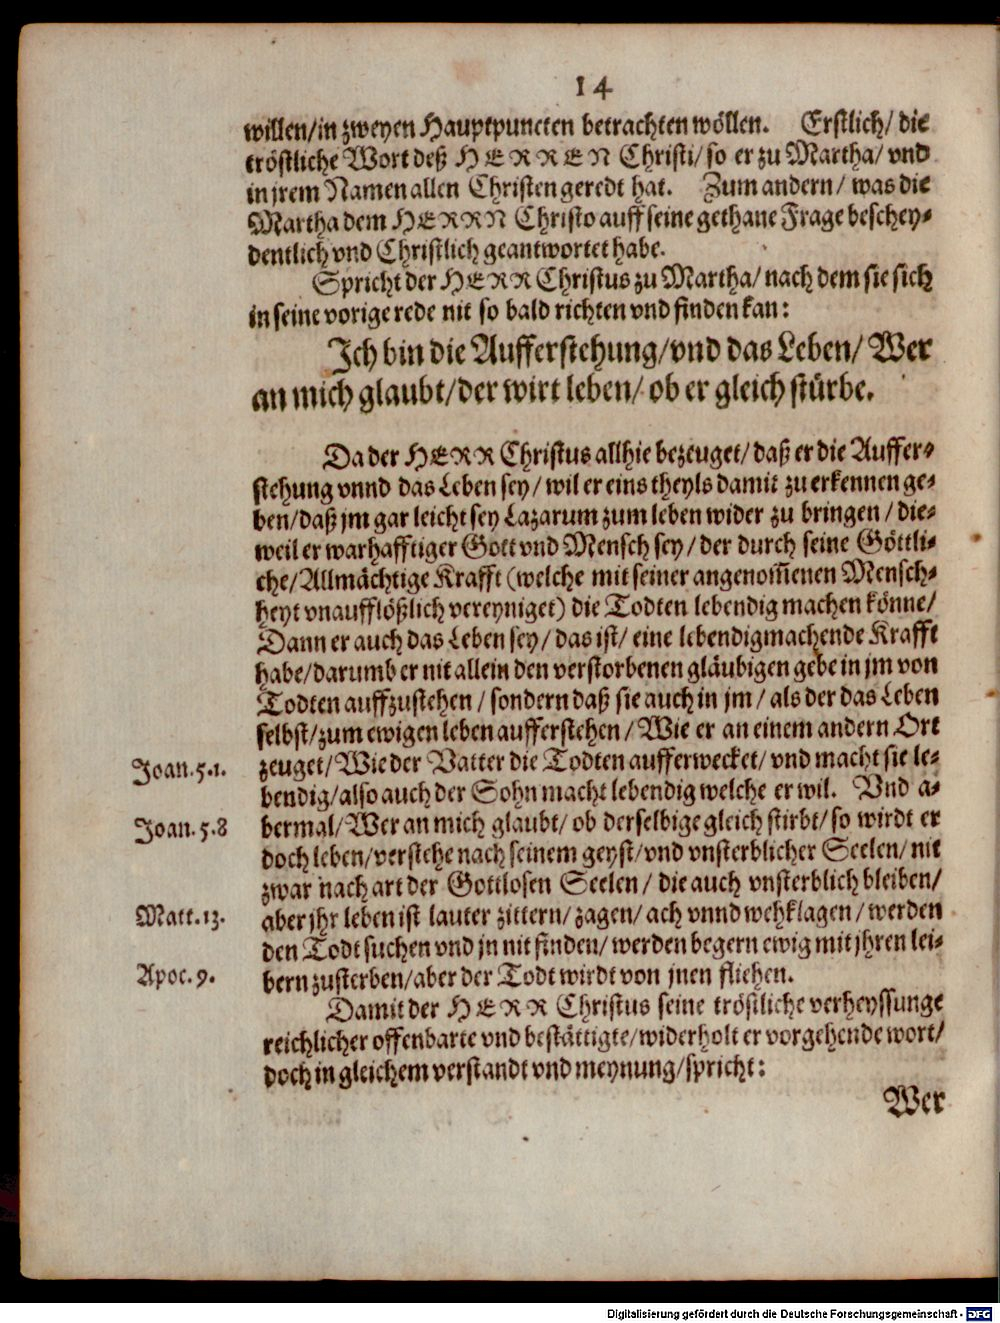 14
willen/in zweyen Hauptpuncten betrachten wöllen. Erstlich/ die
tröstliche Wort deß HERREN Christi/ so er zu Martha/ vnd
in jrem Namen allen Christen geredt hat. Zum andern/ was die
Martha dem HERRN Christo auff seine gethane Frage beschey-
dentlich vnd Christlich geantwortet habe.
Spricht der HERR Christus zu Martha/ nach dem sie sich
in seine vorige rede nit so bald richten vnd finden kan:
Ich bin die Aufferstehung/vnd das Leben/ Wer
an mich glaubt/der wirt leben/ ob er gleich stürbe.
Da der HERR Christus allhie bezeuget/ daß er die Auffer-
stehung vnnd das Leben sey/ wil er eins theyls damit zu erkennen ge-
ben/daß jm gar leicht sey Lazarum zum leben wider zu bringen / die-
weil er warhafftiger Gott vnd Mensch sey/ der durch seine Göttli-
che/Allmächtige Krafft (welche mit seiner angenom̃enen Mensch-
heyt vnaufflößlich vereyniget) die Todten lebendig machen könne/
Dann er auch das Leben sey/ das ist/ eine lebendigmachende Krafft
habe/darumb er nit allein den verstorbenen gläubigen gebe in jm von
Todten auffzustehen / sondern daß sie auch in jm / als der das Leben
selbst/zum ewigen leben aufferstehen/ Wie er an einem andern Ort
Joan.5.1. zeuget/Wie der Vatter die Todten aufferwecket/ vnd macht sie le-
bendig/also auch der Sohn macht lebendig welche er wil. Vnd a-
Joan.5.8 bermal/Wer an mich glaubt/ ob derselbige gleich stirbt/so wirdt er
doch leben/verstehe nach seinem geyst/vnd vnsterblicher Seelen/ nit
zwar nach art der Gottlosen Seelen/ die auch vnsterblich bleiben/
Matt.13. aber jhr leben ist lauter zittern/ zagen/ ach vnnd wehklagen / werden
den Todt suchen vnd jn nit finden/ werden begern ewig mit jhren lei-
Apoc.9. bern zusterben/aber der Todt wirdt von jnen fliehen.
Damit der HERR Christus seine tröstliche verheyssunge
reichlicher offenbarte vnd bestättigte/widerholt er vorgehende wort/
doch in gleichem verstandt vnd meynung/spricht:
Wer
Digitalisierung gefördert durch die Deutsche Forschungsgemeinschaft - DFG